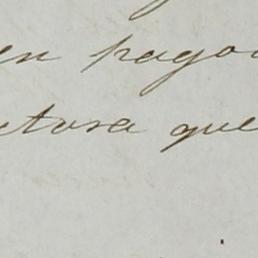 en pago
ctora que